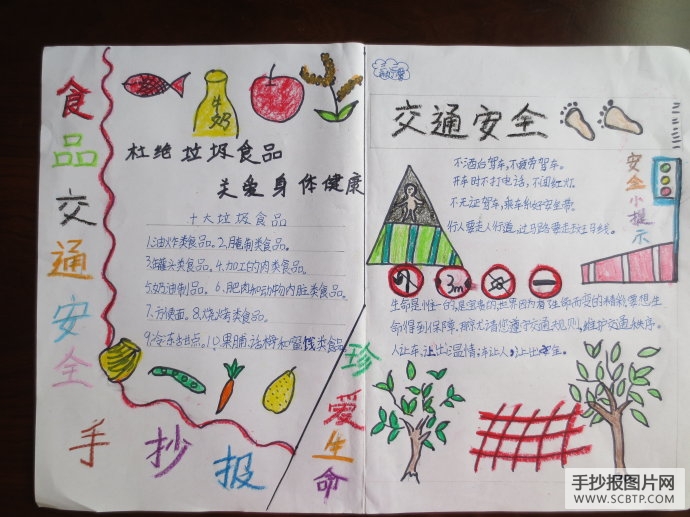 食品交通安全
手抄报
牛奶
杜绝垃圾食品
关爱身体健康
十大垃圾食品
1.油炸类食品。2.腌制类食品。
3.罐头类食品。4.加工的肉类食品。
5.奶油制品。6.肥肉和动物内脏类食品。
7.方便面。8.烧烤类食品。
9.冷冻甜点。10.果脯.话梅和蜜饯类食品
珍爱生命
交通安全
不酒后驾车,不疲劳驾车。
开车时不打电话,不闯红灯
不无证驾车,乘车系好安全带。
行人要走人行道,过马路要走斑马线。
安全小提示
3m
生命是惟一的,是宝贵的,世界因为有了生命而变的精彩,要想生
命得到保障,那就请您遵守交通规则,维护交通秩序。
人让车,让出温情;车让人,让出
手抄报图片网
WWW.SCBTP.COM